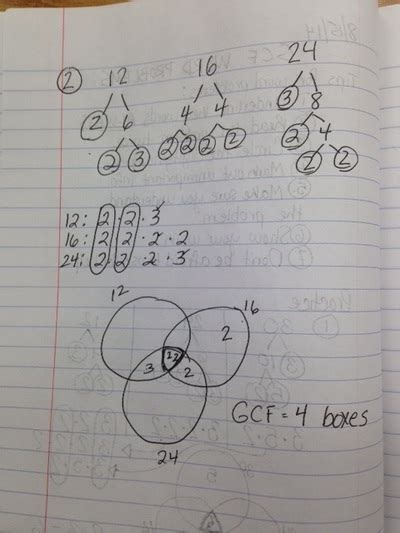 ② 12 16 24
2 6 4 4 3 8
2 3 2 2 2 2 2 4
2 2
12: 2 2 · 3
16: 2 2 · 2 · 2
24: 2 2 2 · 3
12
16
2
22
3 2
GCF = 4 boxes
24